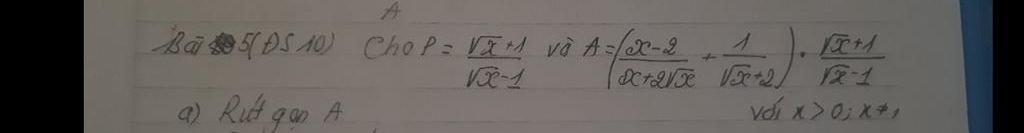 A
Bài 5 (ĐS 10) Cho P = \frac{\sqrt{x}+1}{\sqrt{x}-1} và A = \left(\frac{x-2}{x+2\sqrt{x}} + \frac{1}{\sqrt{x}+2}\right) \cdot \frac{\sqrt{x}+1}{\sqrt{x}-1}
a) Rút gọn A với x > 0; x ≠ 1